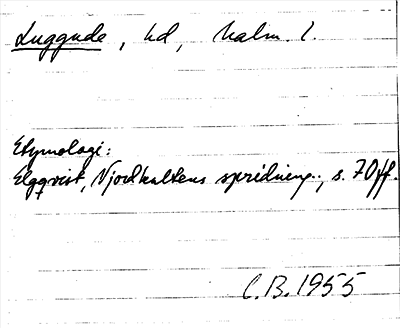 Luggude, hd, Malm. l.
Etymologi:
Elgqvist, Njordkultens spridning., s. 70ff.
C.B. 1955